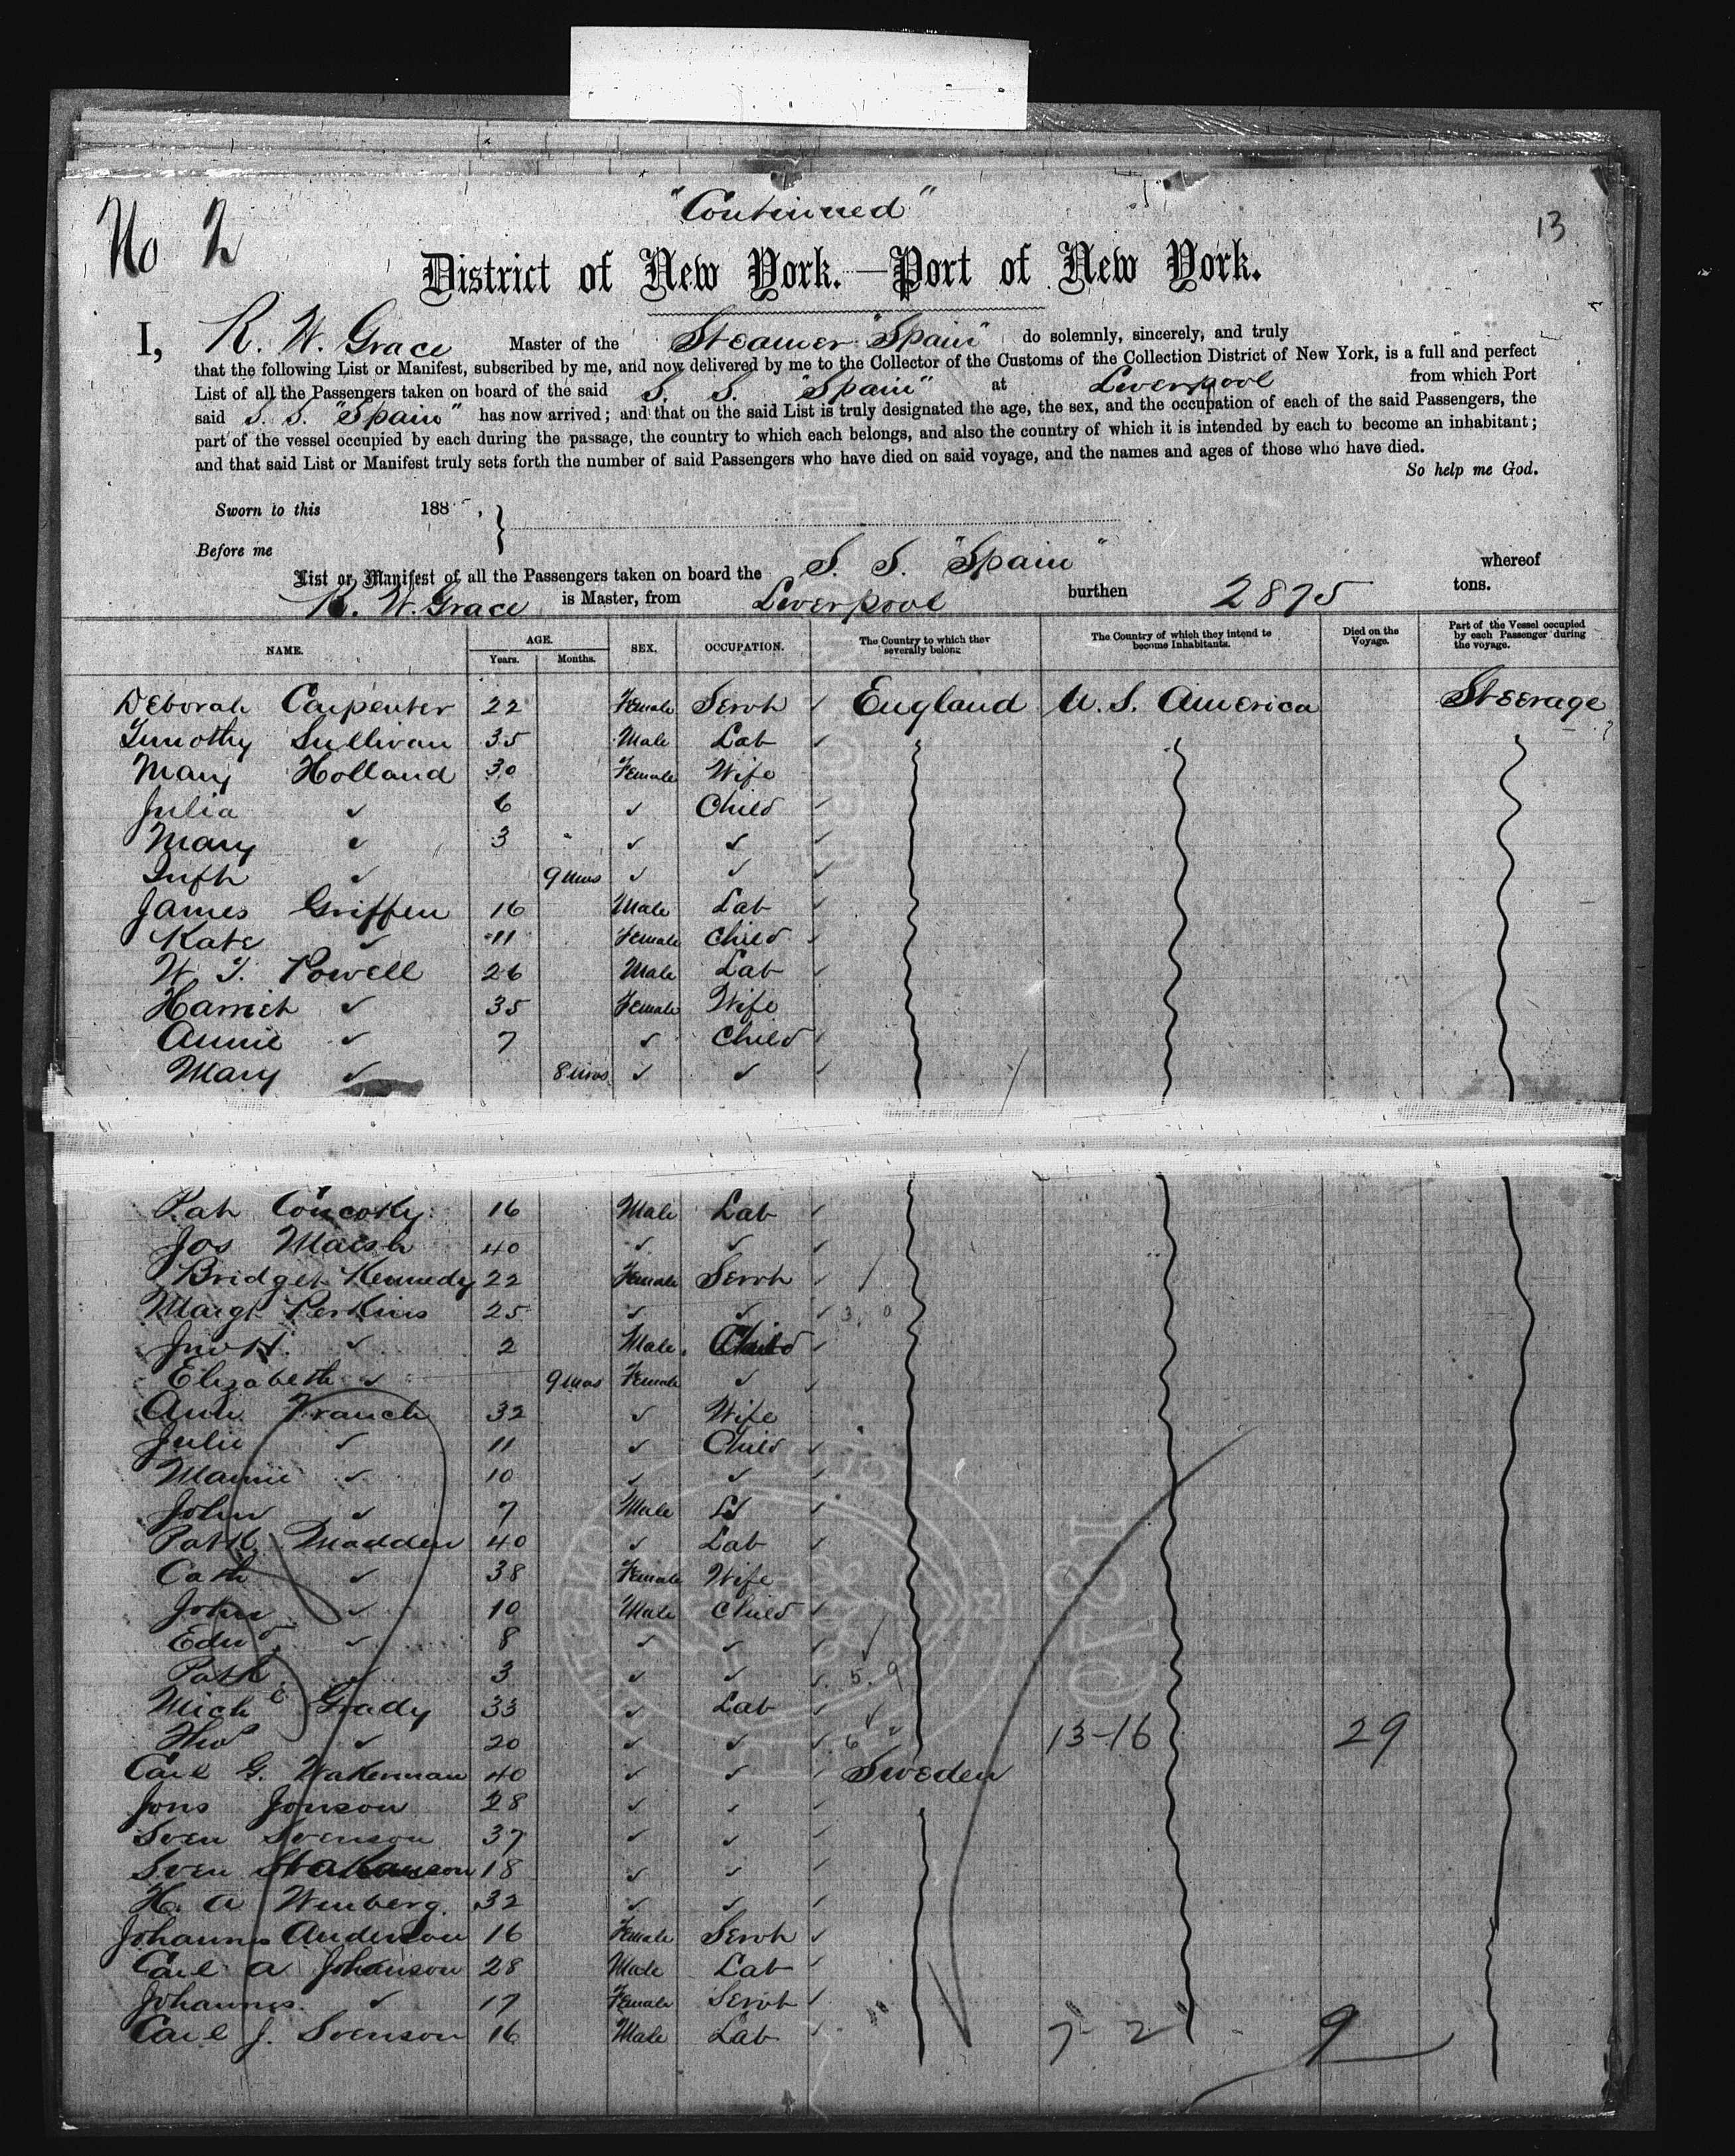 "Continued"
No 2
13
District of New York.—Port of New York.
I, R. W. Grace Master of the Steamer "Spain" do solemnly, sincerely, and truly
that the following List or Manifest, subscribed by me, and now delivered by me to the Collector of the Customs of the Collection District of New York, is a full and perfect
List of all the Passengers taken on board of the said S. S. "Spain" at Liverpool from which Port
said S. S. "Spain" has now arrived; and that on the said List is truly designated the age, the sex, and the occupation of each of the said Passengers, the
part of the vessel occupied by each during the passage, the country to which each belongs, and also the country of which it is intended by each to become an inhabitant;
and that said List or Manifest truly sets forth the number of said Passengers who have died on said voyage, and the names and ages of those who have died.
So help me God.
Sworn to this 188 ,
Before me
List or Manifest of all the Passengers taken on board the S. S. "Spain" whereof
R. W. Grace is Master, from Liverpool burthen 2875 tons.
NAME. AGE. Years. Months. SEX. OCCUPATION. The Country to which they severally belong The Country of which they intend to become Inhabitants. Died on the Voyage. Part of the Vessel occupied by each Passenger during the voyage.
Deborah Carpenter 22 Female Servt ✓ England U. S. America Steerage
Timothy Sullivan 35 Male Lab ✓
Mary Holland 30 Female Wife
Julia ✓ 6 ✓ Child ✓
Mary ✓ 3 ✓ ✓ ✓
Infh ✓ 9 mos ✓ ✓ ✓
James Griffen 16 Male Lab ✓
Kate ✓ 11 Female Child ✓
W. T. Powell 26 Male Lab ✓
Harriet ✓ 35 Female Wife
Annie ✓ 7 ✓ Child ✓
Mary ✓ 8 mos ✓ ✓ ✓
Pat 16 Male Lab ✓
Jos Marsh 40 ✓ ✓ ✓
Bridget Kennedy 22 Female Servt ✓
Margt Perkins 25 ✓ ✓ ✓ 3.0
Jno H. ✓ 2 Male Child ✓
Elizabeth ✓ 9 mos Female ✓ ✓
Ann 32 ✓ Wife
Julie ✓ 11 ✓ Child ✓
Mamie ✓ 10 ✓ ✓ ✓
John ✓ 7 Male ✓
Patk Madden 40 ✓ Lab ✓
Cath ✓ 38 Female Wife
John ✓ 10 Male Child ✓
Edwd ✓ 8 ✓ ✓ ✓
Patk ✓ 3 ✓ ✓ ✓ 5.9
Michl Grady 33 ✓ Lab ✓
Thos ✓ 20 ✓ ✓ ✓ 6 13-16 29
Carl G. Wakerman 40 ✓ ✓ ✓ Sweden
Jons Jonson 28 ✓ ✓ ✓
Sven Svenson 37 ✓ ✓ ✓
Sven 18 ✓ ✓ ✓
H. A Winberg. 32 ✓ ✓ ✓
Johannes Anderson 16 Female Servt ✓
Carl A Johanson 28 Male Lab ✓
Johannes ✓ 17 Female Servt ✓
Carl J. Svenson 16 Male Lab ✓ 7-2 9